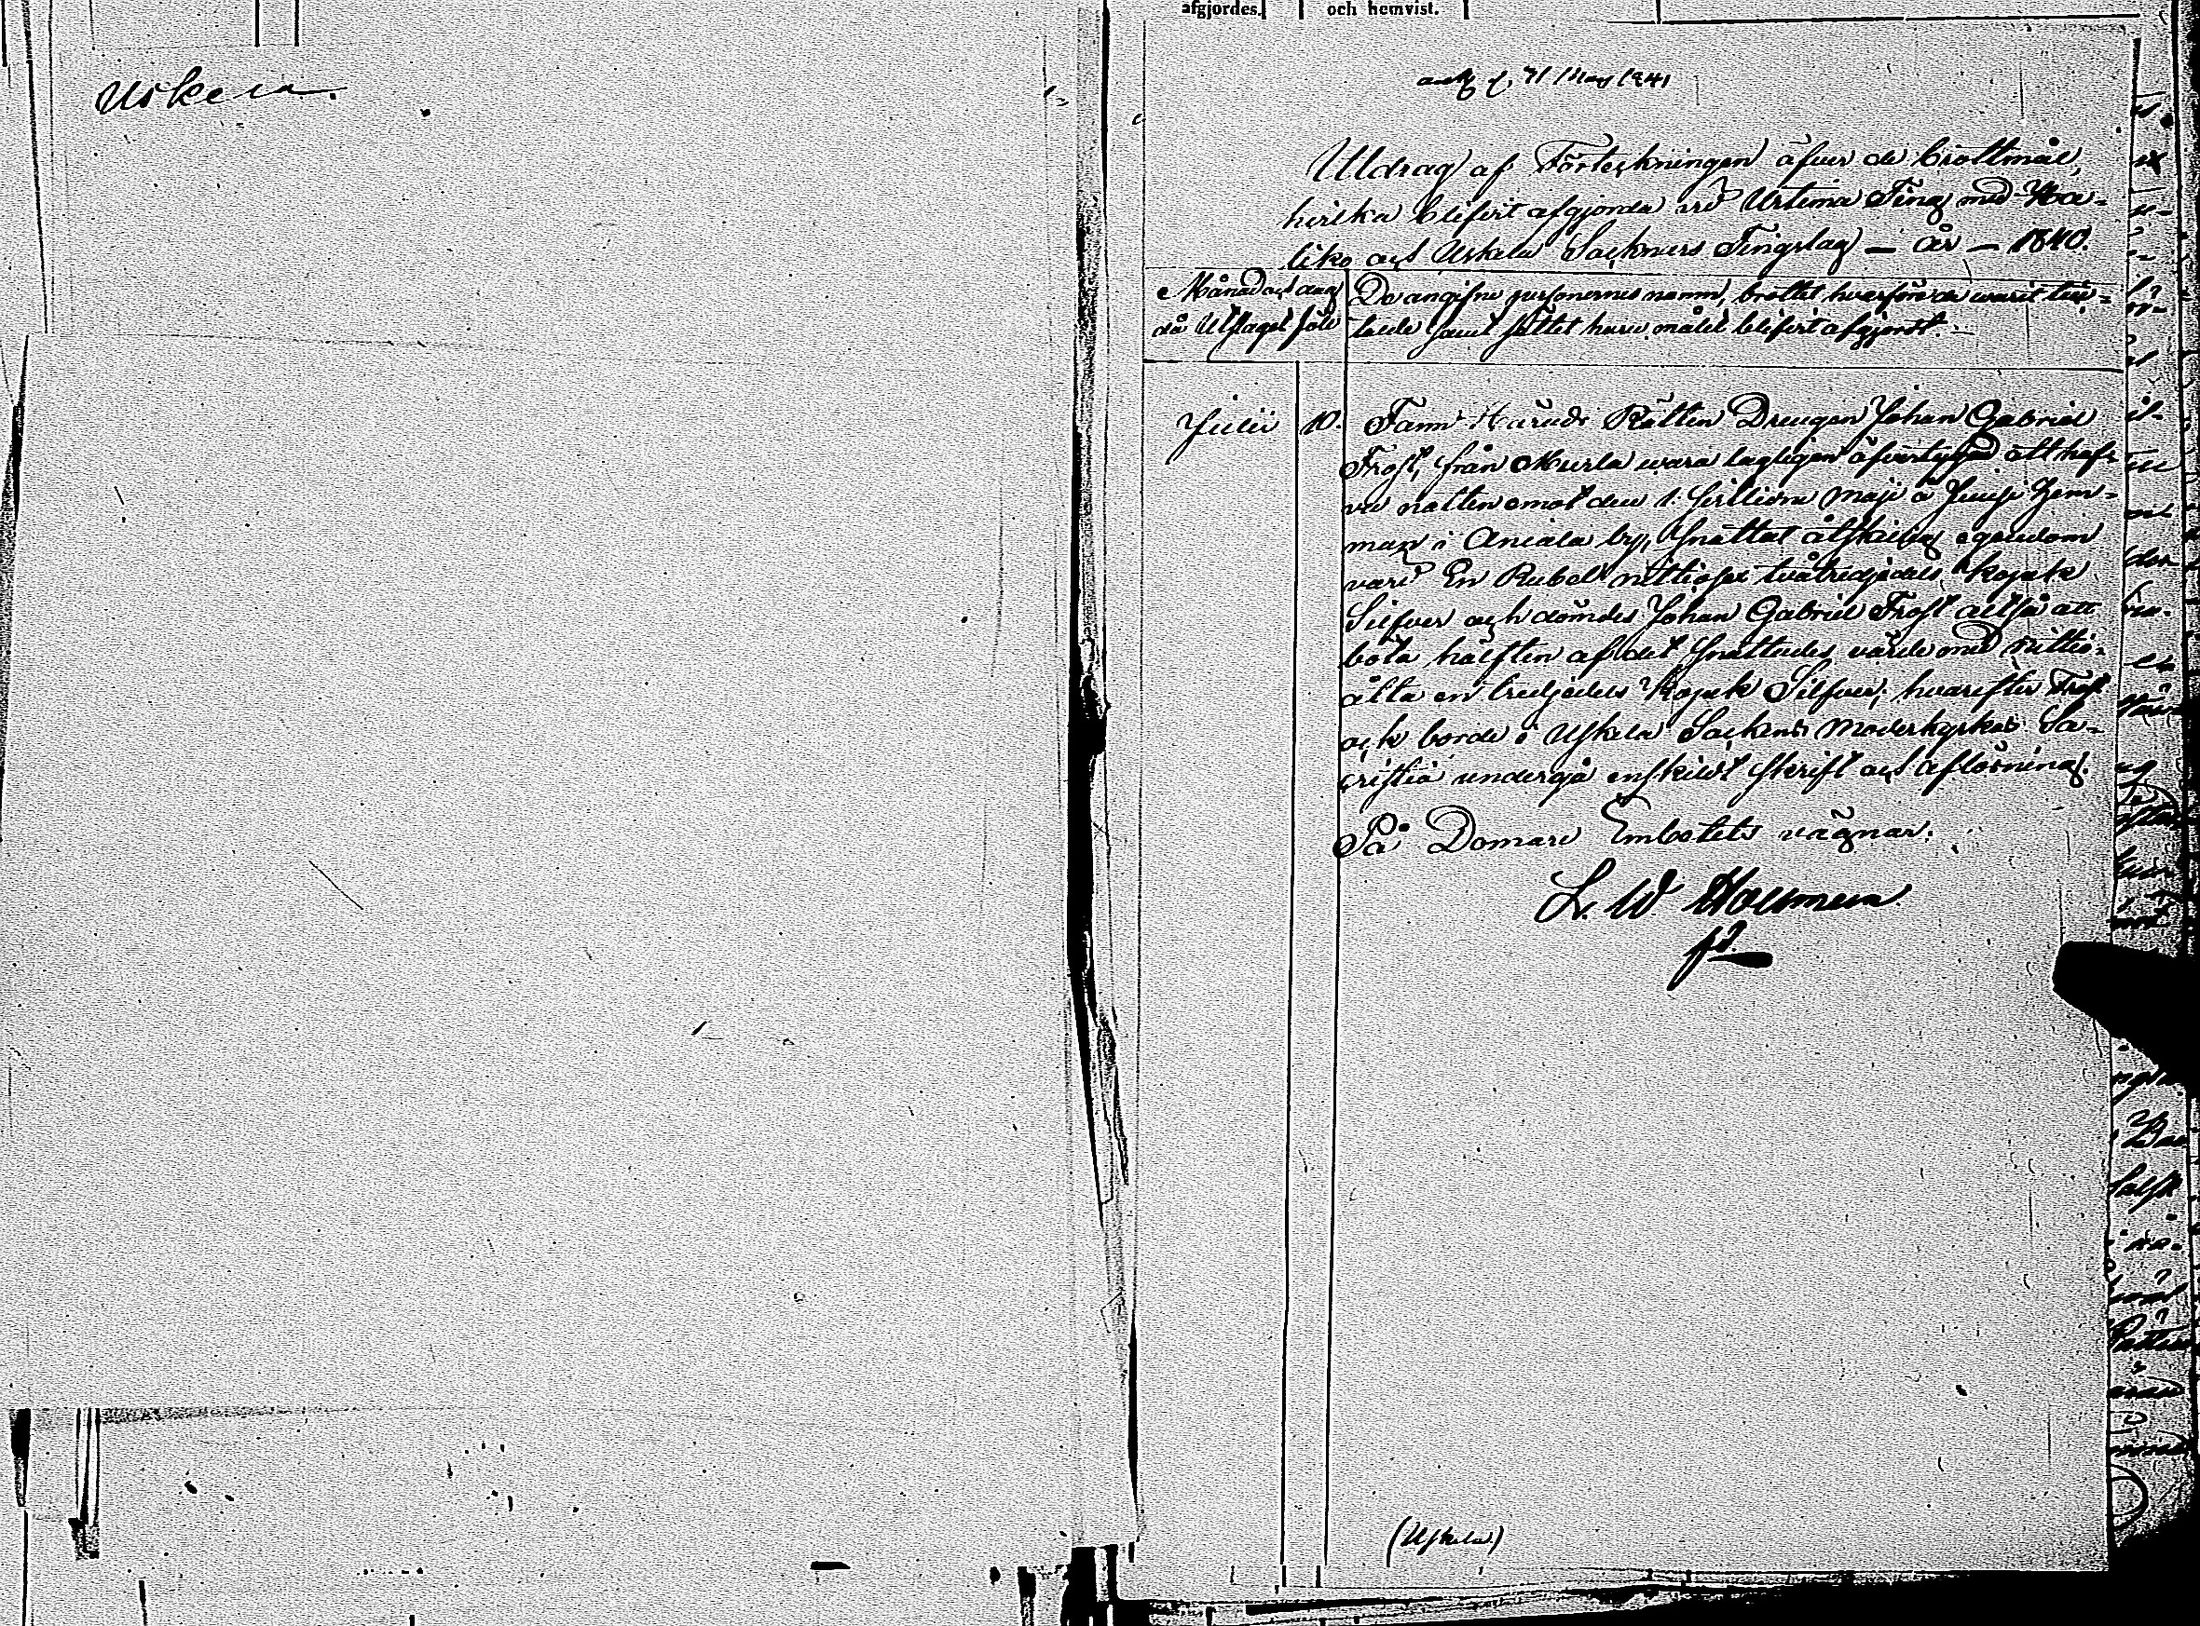 afgjordes.
och hemvist.
Uskela.
ank d. 31 Maj 1841
Utdrag af Förteckningen öfver de brottmål,
hvilka blifvit afgjorda vid Urtima Ting med Ha-
liko och Uskela Socknars Tingslag – år – 1840.
Månad och dag
då Utslaget föll
De angifne personernes namn, brottet hvarföre de warit till-
talade samt sättet huru målet blifvit afgjordt.
Julii 10.
Fann Härads Rätten Drengen Johan Gabriel
Frost, från Murla wara lagligen öfvertygad att haf-
va natten emot den 1. sistledne Maji å Juusi hem-
man i Aniala by, snattat åtskillig egendom
värd En Rubel nittiosex tvåtredjedels kopek
Silfver och dömdes Johan Gabriel Frost altså att
böta hälften af det snattades värde med nittio-
åtta en tredjedels Kopek Silfver; hvarefter Frost
ock borde i Uskela Sockens Moderkyrkas Sa-
cristia undergå enskildt skrift och aflösning.
På Domare Embetets vägnar.
L. W. Hollmen
(Uskela)